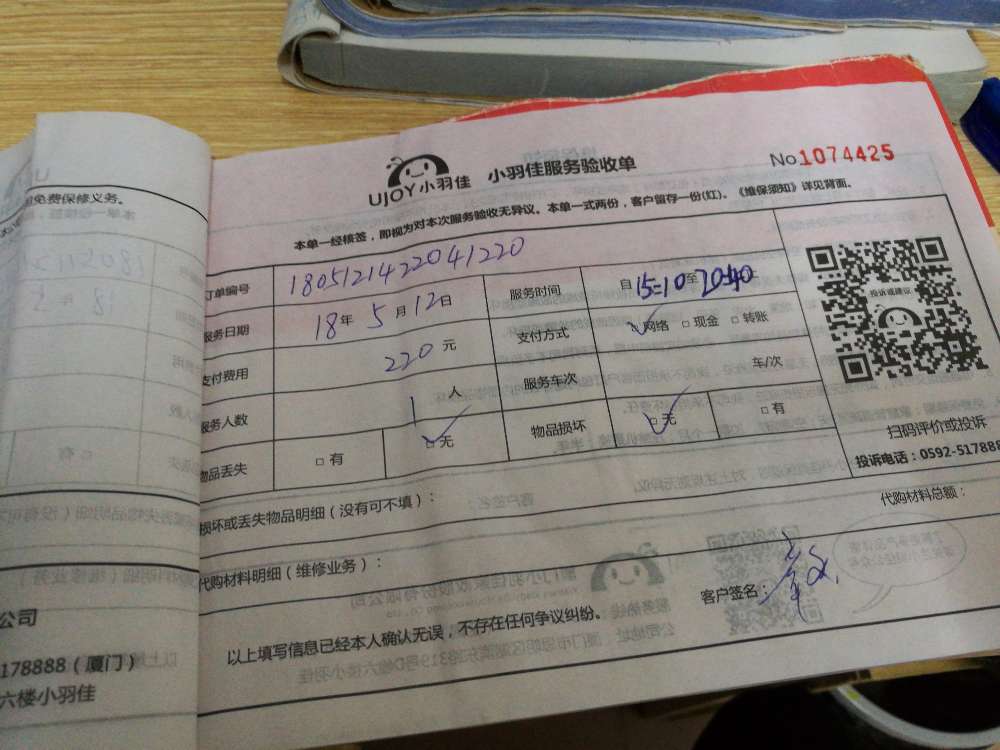 UJOY小羽佳 小羽佳服务验收单 No1074425
本单一经核签，即视为对本次服务验收无异议。本单一式两份，客户留存一份(红)。《维保须知》详见背面。
订单编号 180512142204​1220
服务日期 18年5月12日 服务时间 自15:10至
支付费用 220元 支付方式 网络 □现金 □转账
服务人数 1人 服务车次 车/次
物品丢失 □有 □无 物品损坏 □无 □有
投诉或建议
扫码评价或投诉
投诉电话：0592-517888
损坏或丢失物品明细（没有可不填）：
代购材料总额：
代购材料明细（维修业务）：
客户签名：
以上填写信息已经本人确认无误，不存在任何争议纠纷。
免费保修义务。
公司
178888（厦门）
六楼小羽佳